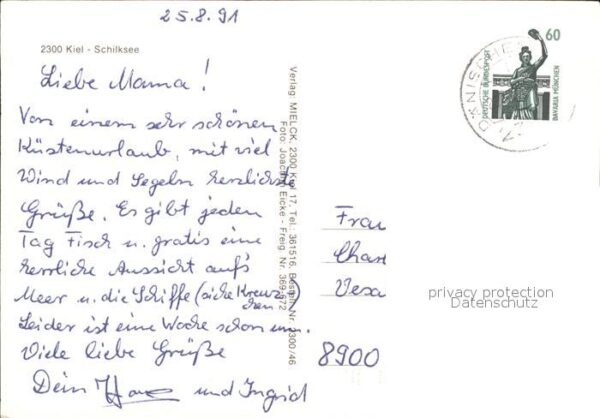 25.8.91
2300 Kiel - Schilksee
Liebe Mama!
Von einem sehr schönen
Küstenurlaub, mit viel
Wind und Segeln herzlichste
Grüße. Es gibt jeden
Tag Fisch u. gratis eine
herrliche Aussicht auf's
Meer u. die Schiffe (siehe Kreuz-
chen)
Leider ist eine Woche schon um.
Viele liebe Grüße
Dein und Ingrid
Verlag: MIELCK, 2300 Kiel 17, Tel.: 361516, Bestell-Nr. 300/46
Foto: Joachim Eicke - Freig. Nr. 369/672
60
DEUTSCHE BUNDESPOST
BAVARIA MÜNCHEN
Frau
Vesa
8900
privacy protection
Datenschutz